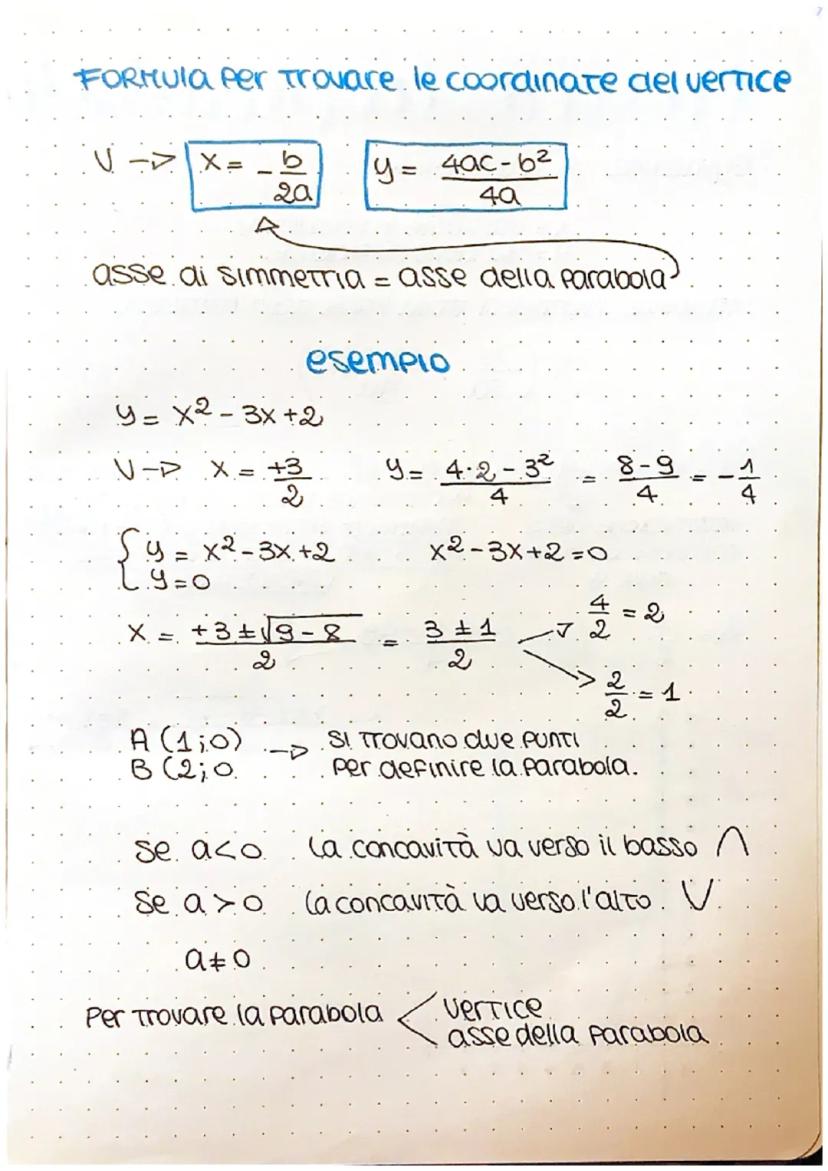 FORMULA PER TROVARE le COORDINATE del VERTICE
V -> x = -b/2a y = (4ac - b²)/4a
asse di simmetria = asse della parabola
esempio
y = x² - 3x + 2
V -> x = +3/2 y = (4·2 - 3²)/4 = (8-9)/4 = -1/4
{ y = x² - 3x + 2 x² - 3x + 2 = 0
{ y = 0
x = (+3 ± √(9 - 8))/2 = (3 ± 1)/2 -> 4/2 = 2
-> 2/2 = 1
A (1;0) -> si trovano due punti
B (2;0 per definire la parabola.
se a<0 la concavità va verso il basso ∩
se a>0 la concavità va verso l'alto. V
a≠0
Per trovare la parabola < vertice
asse della parabola